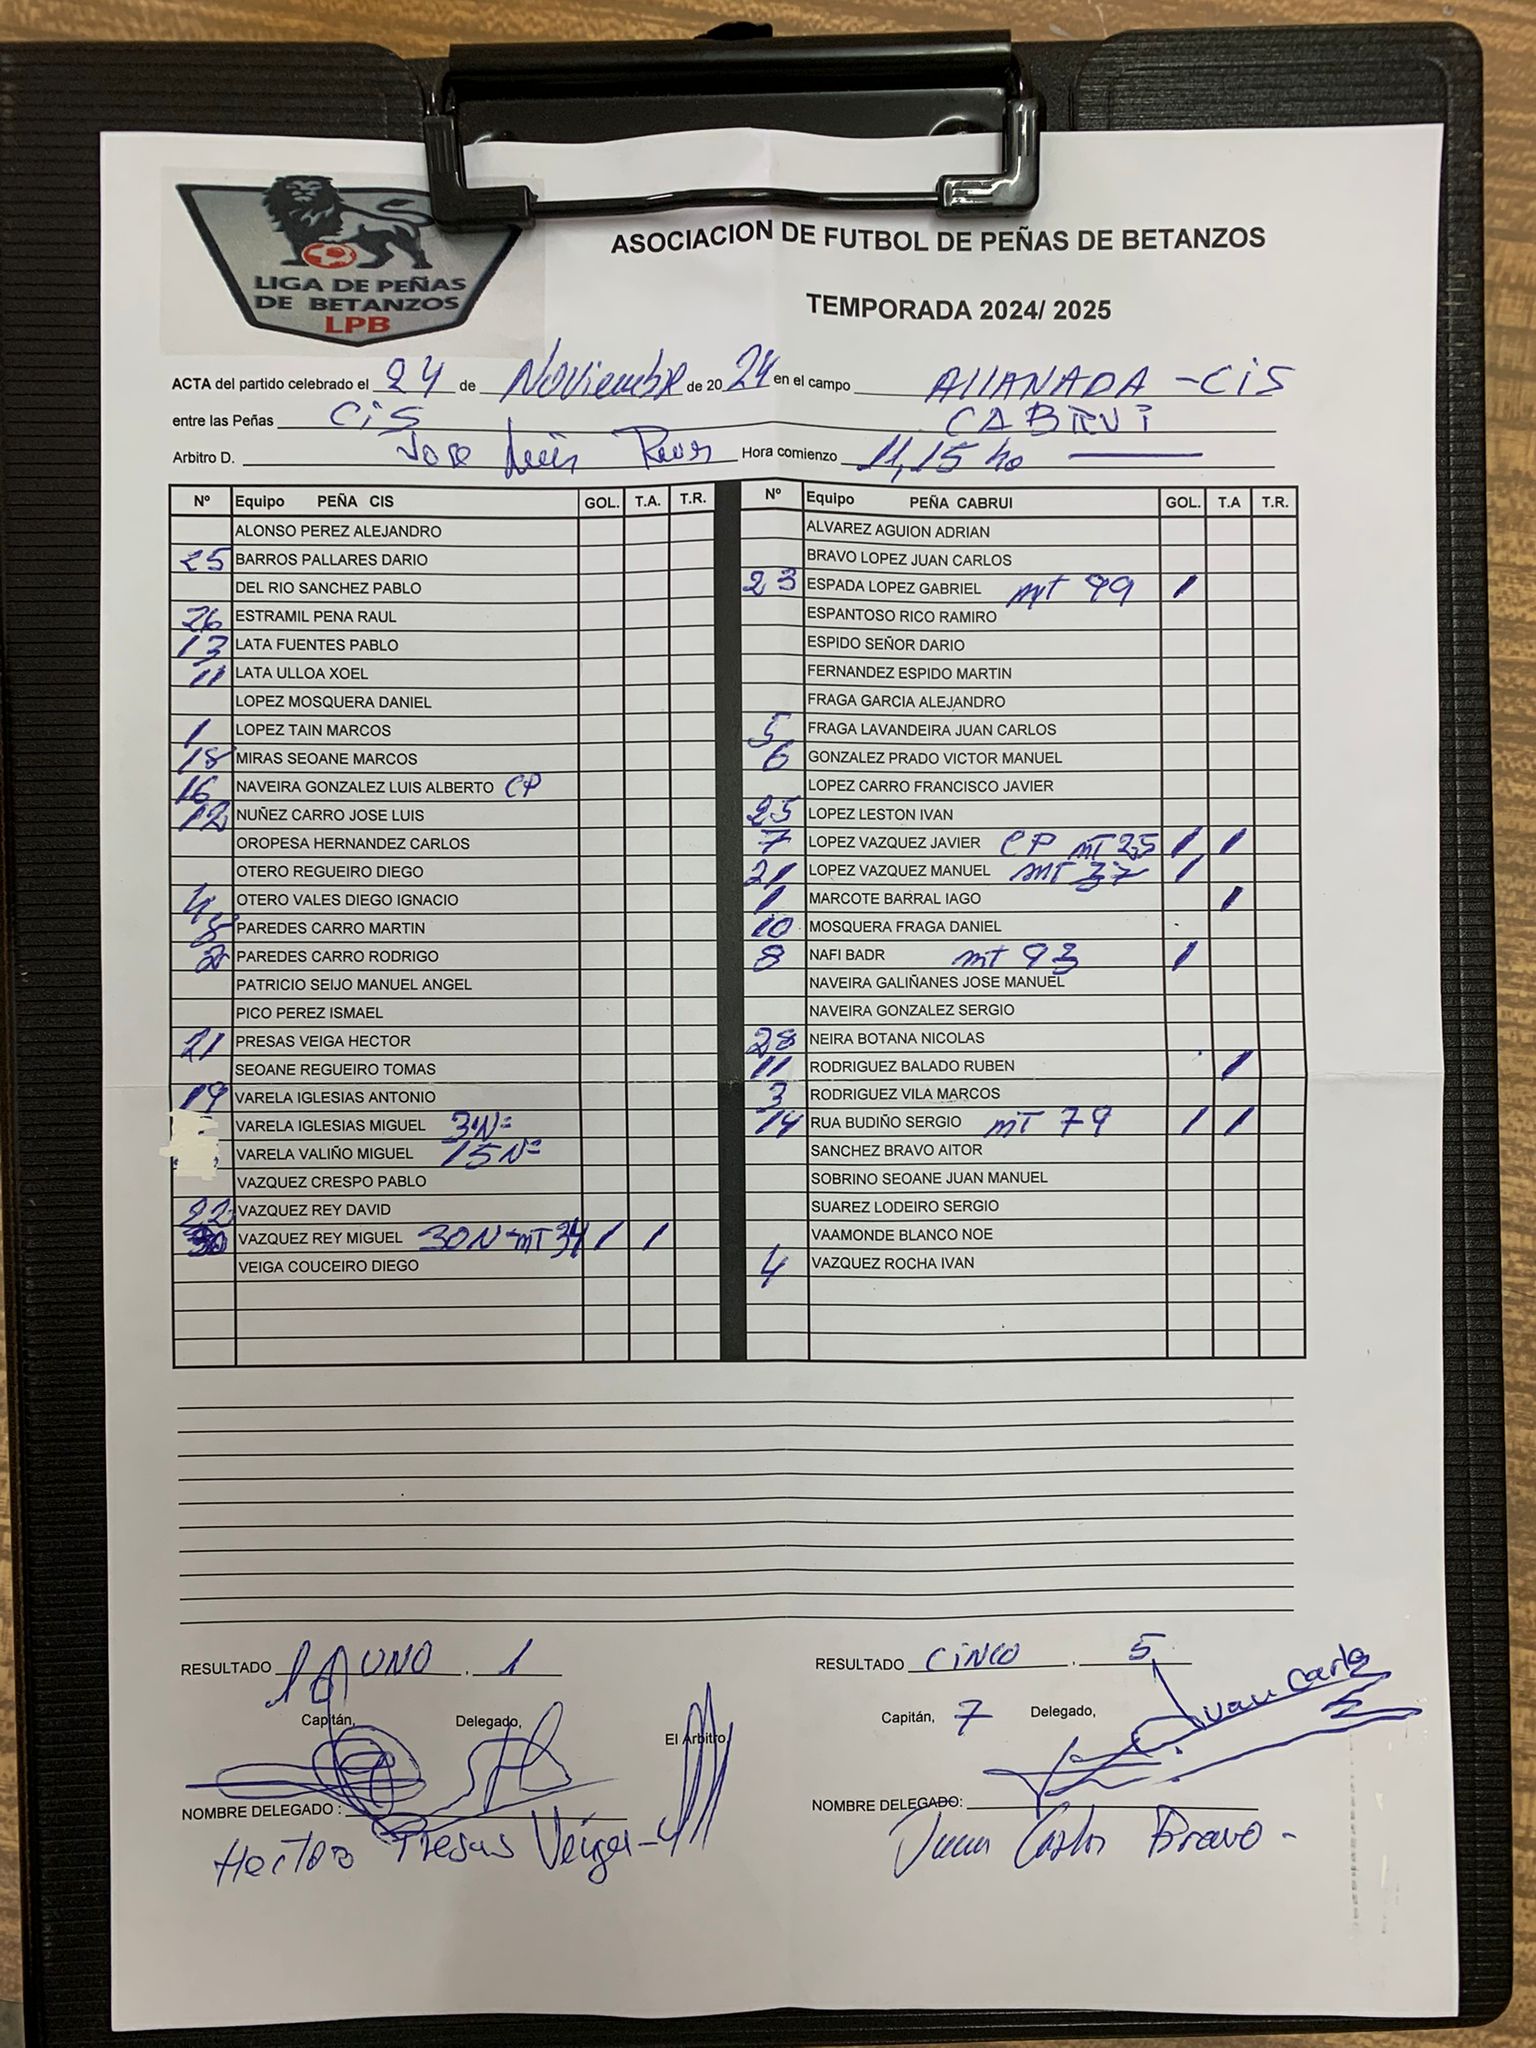 LIGA DE PEÑAS
DE BETANZOS
LPB
ASOCIACION DE FUTBOL DE PEÑAS DE BETANZOS
TEMPORADA 2024/ 2025
ACTA del partido celebrado el 24 de Noviembre de 2024 en el campo AllANADA - CiS
entre las Peñas CiS CABRUi
Arbitro D. Jose Luis Hora comienzo 11,15 ho
Nº Equipo PEÑA CIS GOL. T.A. T.R.
ALONSO PEREZ ALEJANDRO
25 BARROS PALLARES DARIO
DEL RIO SANCHEZ PABLO
26 ESTRAMIL PENA RAUL
13 LATA FUENTES PABLO
11 LATA ULLOA XOEL
LOPEZ MOSQUERA DANIEL
1 LOPEZ TAIN MARCOS
18 MIRAS SEOANE MARCOS
16 NAVEIRA GONZALEZ LUIS ALBERTO CP
12 NUÑEZ CARRO JOSE LUIS
OROPESA HERNANDEZ CARLOS
OTERO REGUEIRO DIEGO
4 OTERO VALES DIEGO IGNACIO
8 PAREDES CARRO MARTIN
2 PAREDES CARRO RODRIGO
PATRICIO SEIJO MANUEL ANGEL
PICO PEREZ ISMAEL
21 PRESAS VEIGA HECTOR
SEOANE REGUEIRO TOMAS
19 VARELA IGLESIAS ANTONIO
VARELA IGLESIAS MIGUEL 3N=
VARELA VALIÑO MIGUEL 15N=
VAZQUEZ CRESPO PABLO
22 VAZQUEZ REY DAVID
30 VAZQUEZ REY MIGUEL 30N-mT 34 1 1
VEIGA COUCEIRO DIEGO
Nº Equipo PEÑA CABRUI GOL. T.A T.R.
ALVAREZ AGUION ADRIAN
BRAVO LOPEZ JUAN CARLOS
23 ESPADA LOPEZ GABRIEL mT 99 1
ESPANTOSO RICO RAMIRO
ESPIDO SEÑOR DARIO
FERNANDEZ ESPIDO MARTIN
FRAGA GARCIA ALEJANDRO
5 FRAGA LAVANDEIRA JUAN CARLOS
6 GONZALEZ PRADO VICTOR MANUEL
LOPEZ CARRO FRANCISCO JAVIER
25 LOPEZ LESTON IVAN
7 LOPEZ VAZQUEZ JAVIER CP mT 25 1 1
21 LOPEZ VAZQUEZ MANUEL mT 37 1
1 MARCOTE BARRAL IAGO 1
10 MOSQUERA FRAGA DANIEL
8 NAFI BADR mT 93 1
NAVEIRA GALIÑANES JOSE MANUEL
NAVEIRA GONZALEZ SERGIO
28 NEIRA BOTANA NICOLAS
11 RODRIGUEZ BALADO RUBEN 1
3 RODRIGUEZ VILA MARCOS
14 RUA BUDIÑO SERGIO mT 79 1 1
SANCHEZ BRAVO AITOR
SOBRINO SEOANE JUAN MANUEL
SUAREZ LODEIRO SERGIO
VAAMONDE BLANCO NOE
4 VAZQUEZ ROCHA IVAN
RESULTADO UNO , 1
RESULTADO CiNCO , 5
Capitán, Delegado, El Arbitro,
Capitán, 7 Delegado, Juan Carlo
NOMBRE DELEGADO :
Hector Presas Veiga
NOMBRE DELEGADO:
Juan Carlos Bravo -